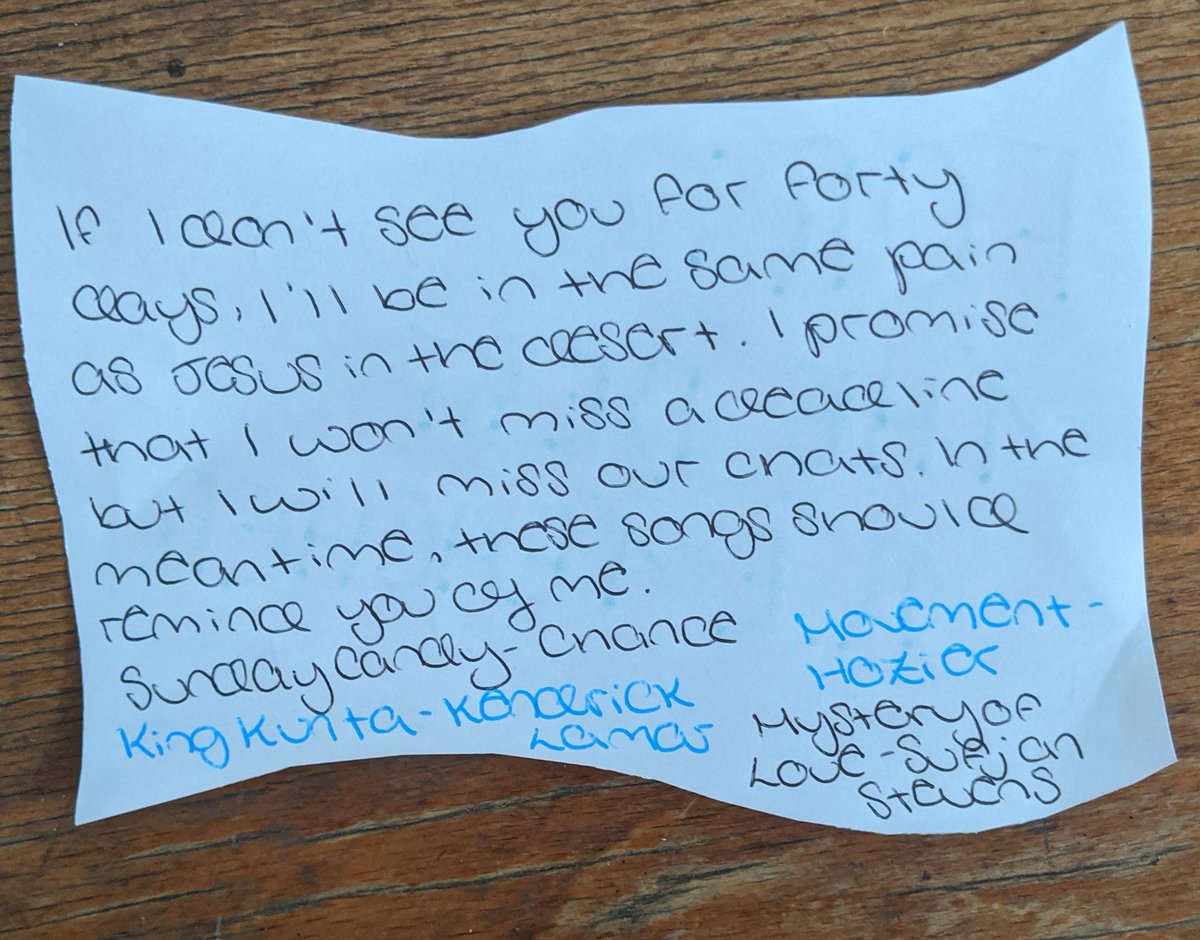 If I don't see you for forty
days, I'll be in the same pain
as Jesus in the desert. I promise
that I won't miss a deadline
but I will miss our chats. In the
meantime, these songs should
remind you of me.
Sunday Candy - Chance
King Kunta - Kendrick
Lamar
Movement -
Hozier
Mystery of
Love - Sufjan
Stevens